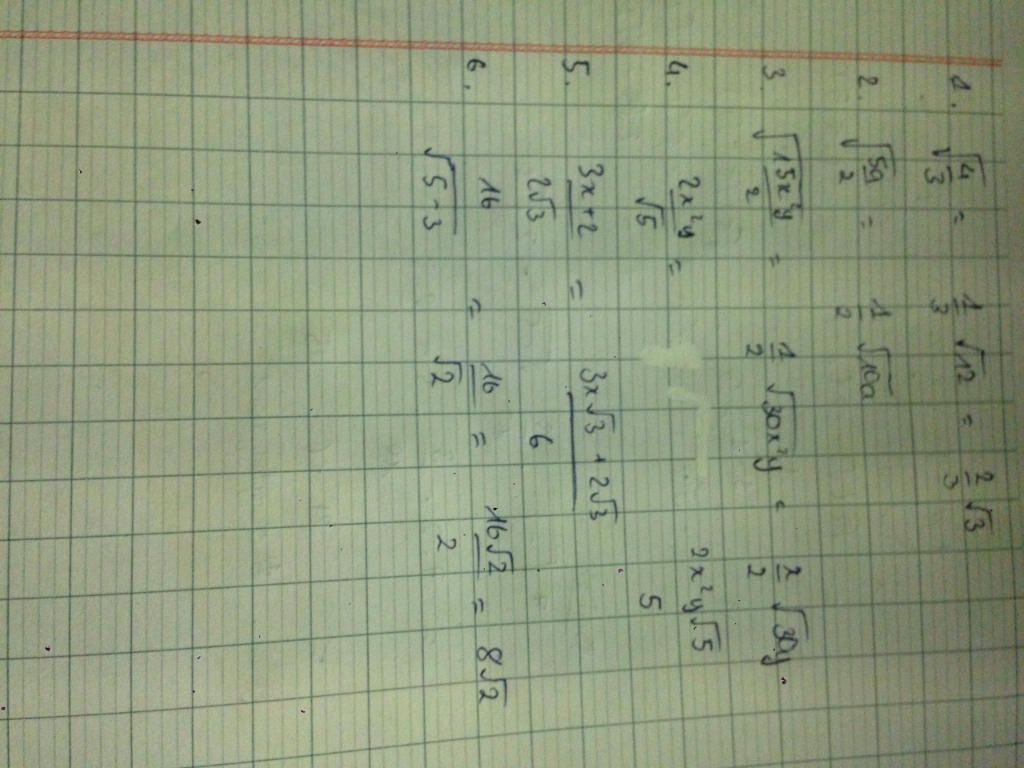 1. √(4/3) = 1/3 √12 = 2/3 √3
2. √(5a/2) = 1/2 √10a
3. √(15x²y/2) = 1/2 √30x²y = x/2 √30y
4. 2x²y/√5 = 2x²y√5/5
5. (3x+2)/(2√3) = (3x√3 + 2√3)/6
6. 16/√(5-3) = 16/√2 = 16√2/2 = 8√2